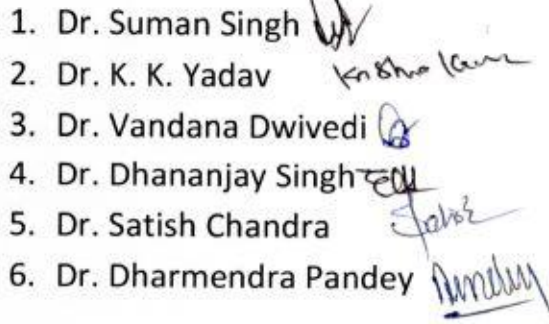 1. Dr. Suman Singh
2. Dr. K. K. Yadav Krishna Kumar
3. Dr. Vandana Dwivedi
4. Dr. Dhananjay Singh
5. Dr. Satish Chandra Satish
6. Dr. Dharmendra Pandey